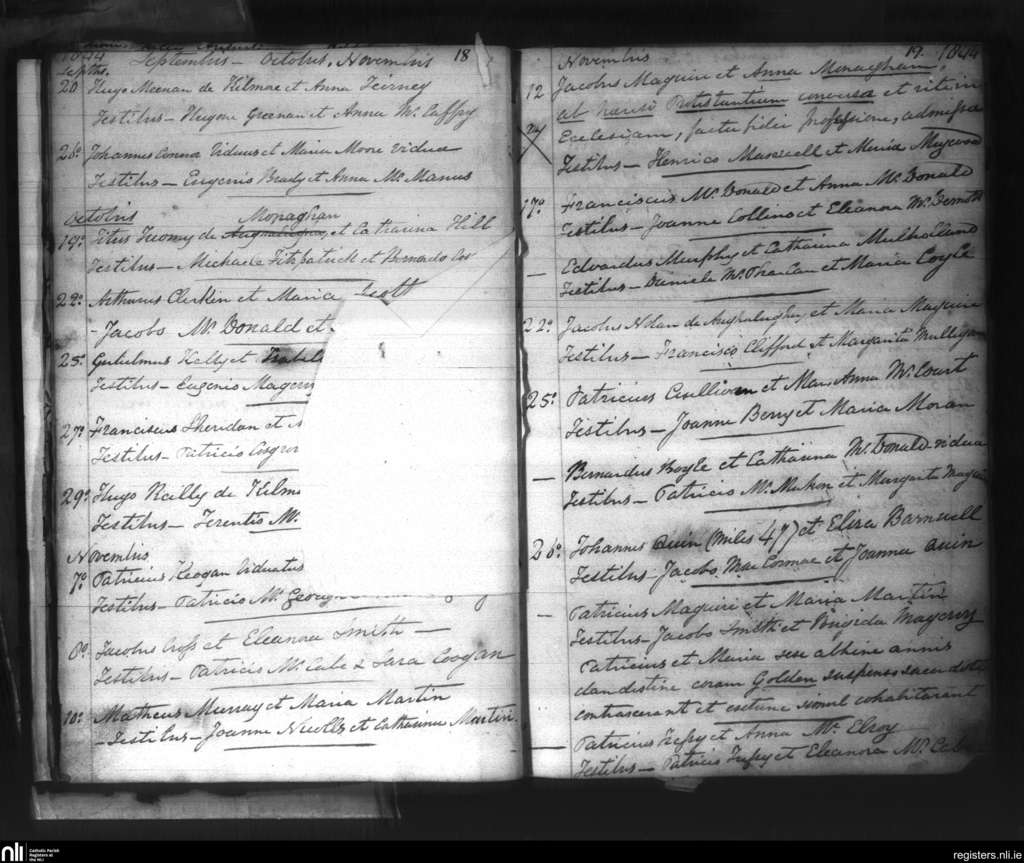 1844 Septembris - Octobris, Novembris 18
Septbs.
20 Hugo Meenan de Kilmore et Anna Tierney
Testibus - Hugone Greenan et Anna Mc Caffry
28º Johannes Connor Viduus et Maria Moore vidua
Testibus - Eugenio Brady et Anna Mc Manus
Octobris Monaghan
19º Titus Twomy de et Catharina Hill
Testibus - Michaele Fitzpatrick et Bernardo
22º Arthurus Clerkin et Maria Scott
- Jacobo Mc Donald et
25º Gulielmus Kelly et
Testibus - Eugenio
27º Franciscus Sheridan et
Testibus - Patricio
29º Hugo Reilly de
Testibus - Terentio Mc
Novembris
7º Patricius Keogan viduatus
Testibus - Patricio Mc
8º Jacobus Cross et Eleanora Smith -
Testibus - Patricio Mc Cabe & Sara Coogan
10º Matheus Murray et Maria Martin
- Testibus - Joanne Nicolls et Catharina Martin.
Novembris 19 1844
12 Jacobus Maguire et Anna Monaghan,
ab haresi Protestantium conversa et rite in
Ecclesiam, facta fidei professione, admissa
Testibus - Henrico Maxwell et Maria
17º Franciscus Mc Donald et Anna Mc Donald
Testibus - Joanne Collins et Eleanora Mc Dermott
- Edvardus Murphy et Catharina Mulholland
Testibus - Daniele et Maria Coyle
22º Jacobus Nolan de et Maria Maguire
Testibus - Francisco Clifford et Margarita Mulligan
25º Patricius Cullivan et Mar. Anna Mc Court
Testibus - Joanne Berry et Maria Moran
- Bernardus Boyle et Catharina Mc Donald vidua
Testibus - Patricio Mc Mahon et Margarita
26º Johannes Quin (Miles 47) et Eliza Barnwell
Testibus - Jacobo Mac Cormac et Joanna Quin
- Patricius Maguire et Maria Martin
Testibus - Jacobo Smith et Brigida
Patricius et Maria sex abhinc annis
clandistine coram Golden suspenso sacerdote
contraxerant et simul cohabitarunt
- Patricius Treffry et Anna Mc Elroy
Testibus - Patricio et Eleanora Mc Cabe
nli
Catholic Parish
Registers at
the NLI
registers.nli.ie